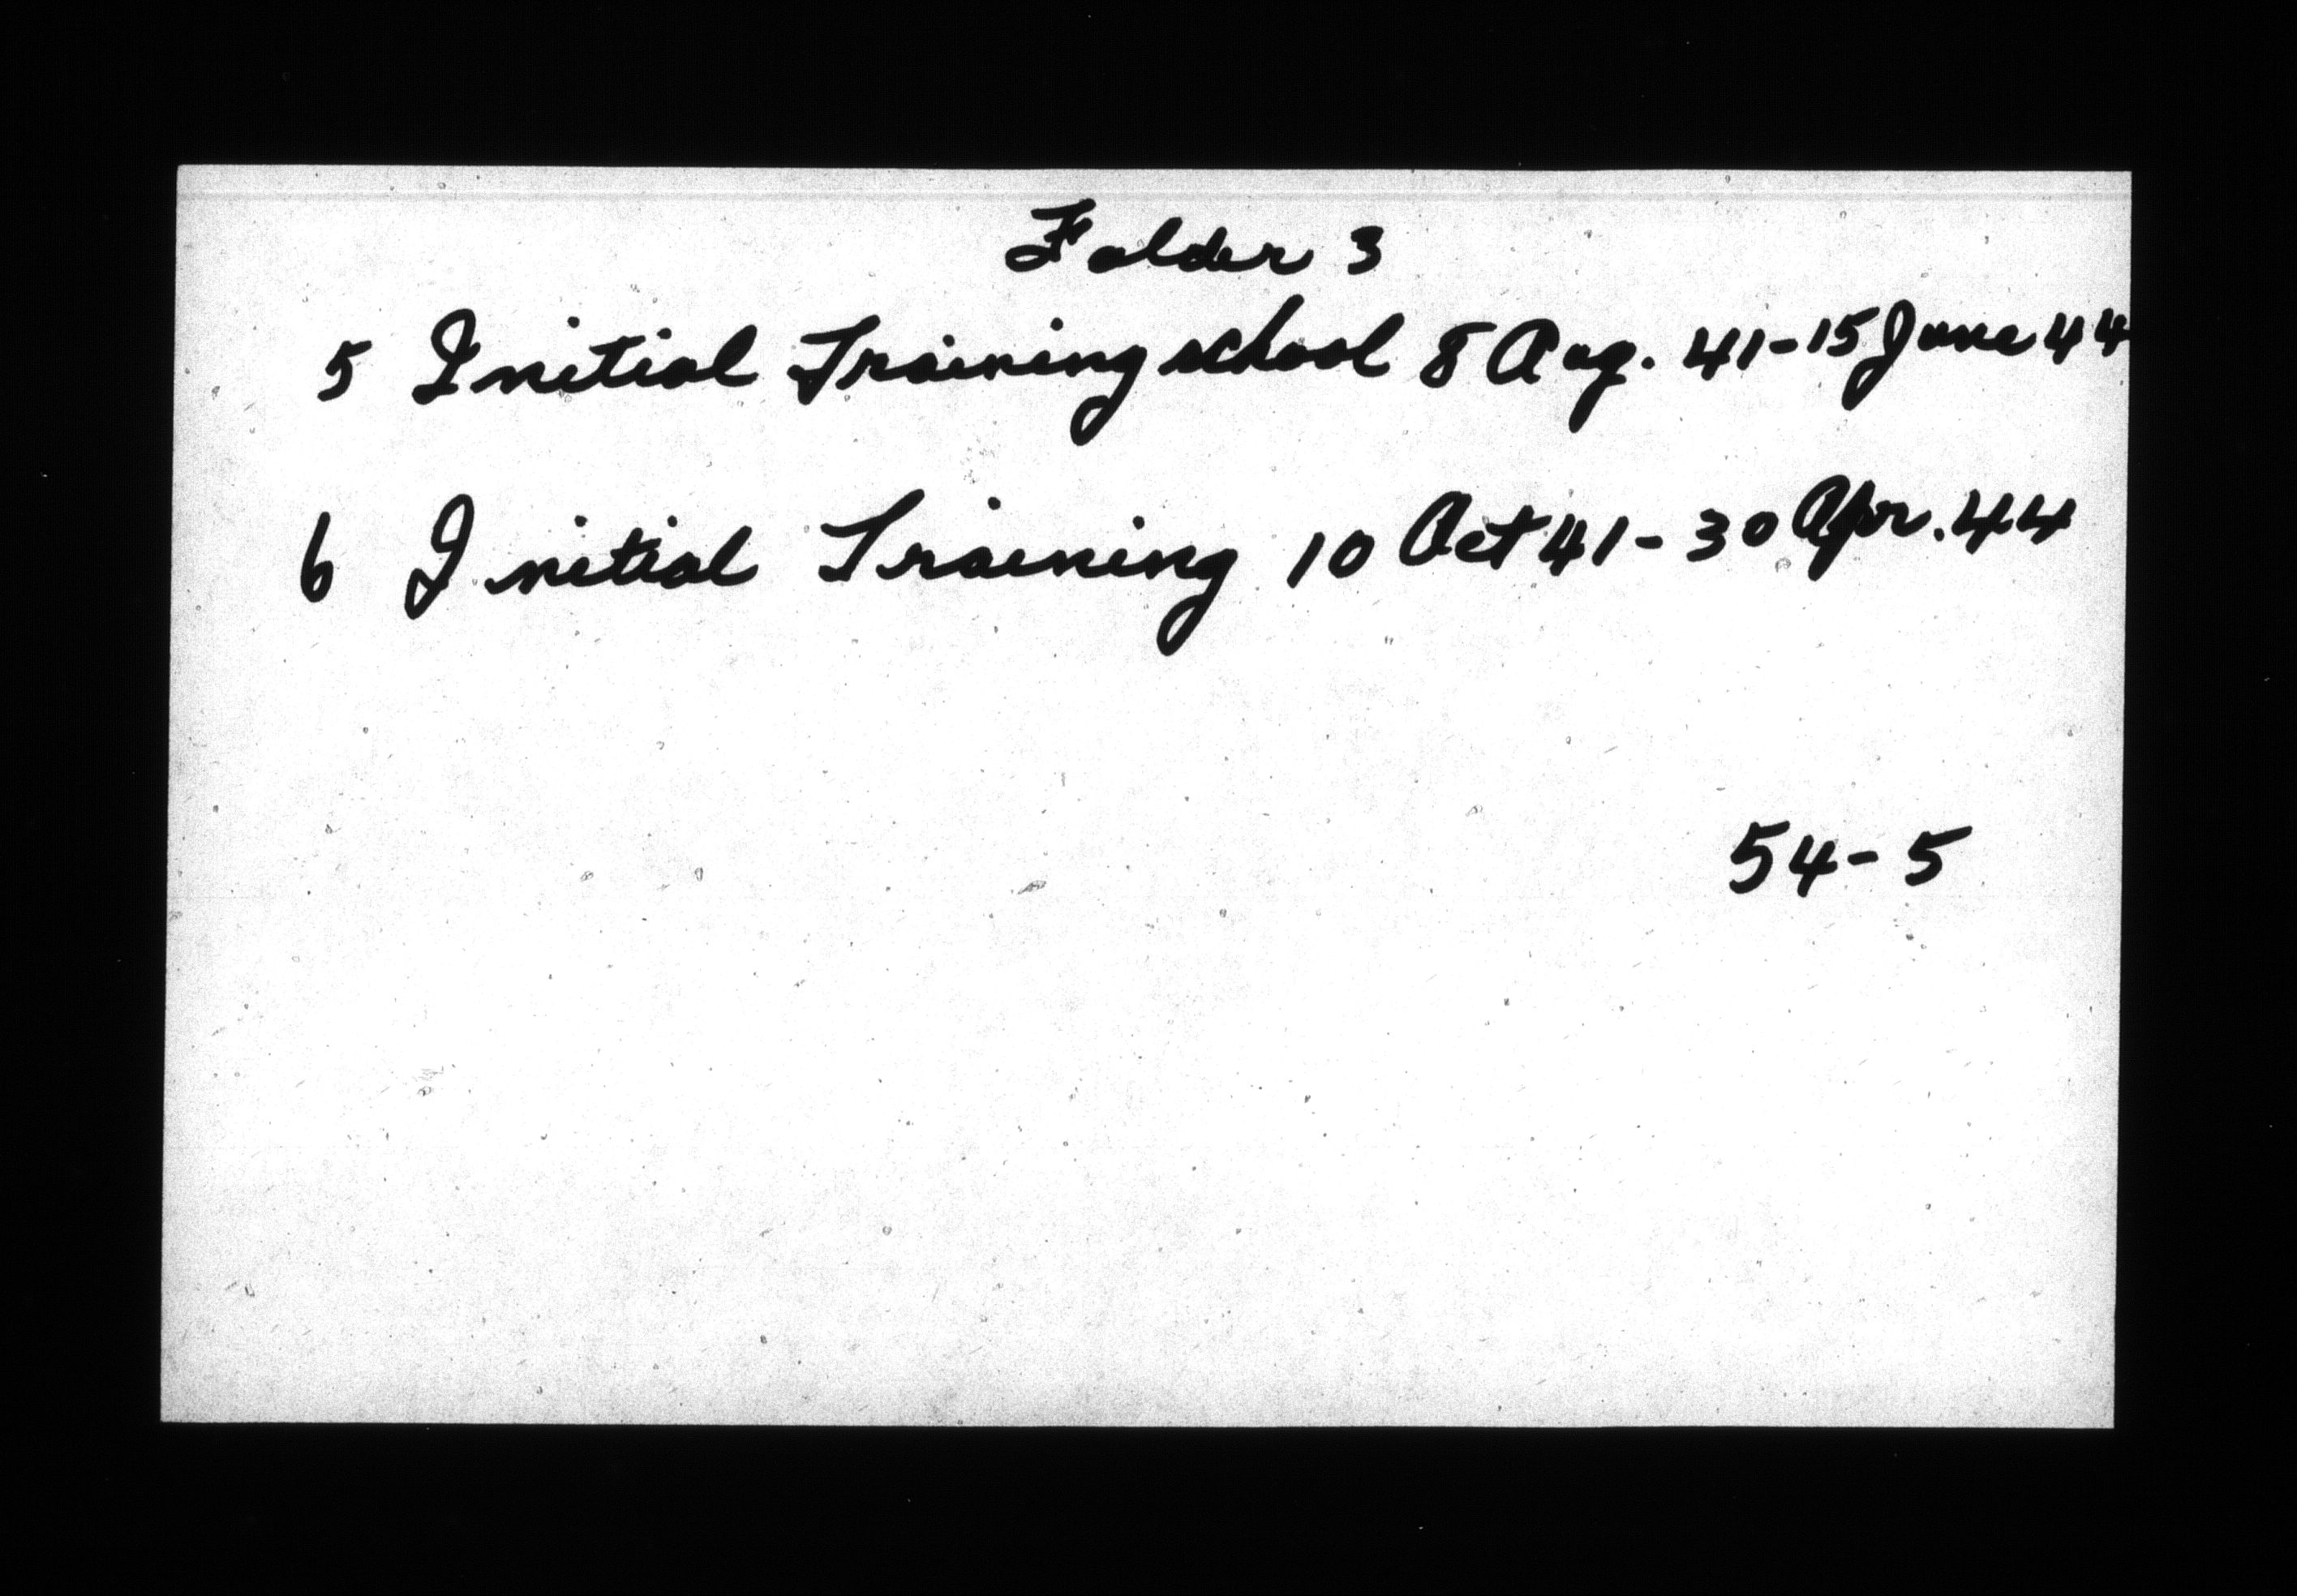 Folder 3
5 Initial Training school 8 Aug. 41-15 June 44
6 Initial Training 10 Oct 41-30 Apr. 44
54-5